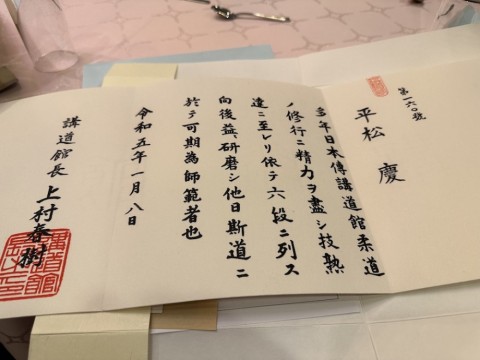 第一六〇號
平松 慶
多年日本傳講道館柔道
ノ修行ニ精力ヲ盡シ技熟
達ニ至レリ依テ六段ニ列ス
向後益〻研磨シ他日斯道ニ
於テ可期為師範者也
令和五年一月八日
講道館長 上村春樹